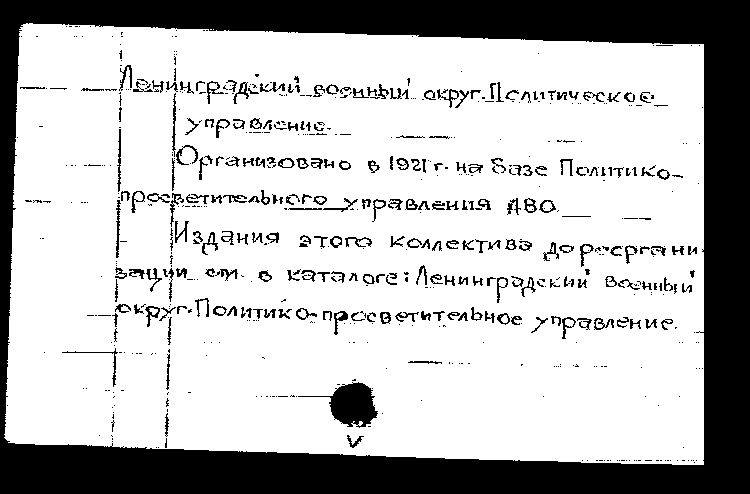 Ленинградский военный округ. Политическое
управление.
Организовано в 1921 г. на базе Политико-
просветительного управления ЛВО.
Издания этого коллектива до реоргани-
зации см. в каталоге: Ленинградский военный
округ. Политико-просветительное управление.